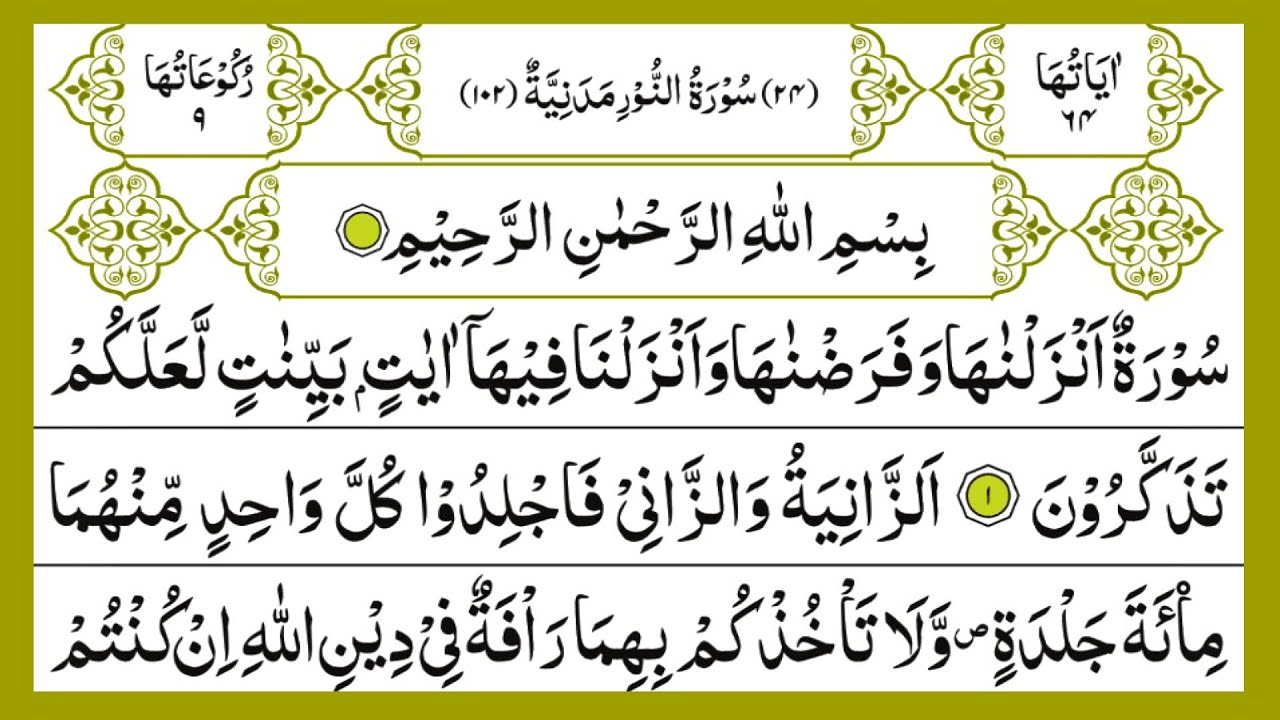 اٰیَاتُهَا
٦٤
(٢٤) سُوْرَةُ النُّوْرِ مَدَنِیَّةٌ (١٠٢)
رُكُوْعَاتُهَا
٩
بِسْمِ اللهِ الرَّحْمٰنِ الرَّحِیْمِ
سُوْرَةٌ اَنْزَلْنٰهَا وَفَرَضْنٰهَا وَاَنْزَلْنَا فِیْهَاۤ اٰیٰتٍۭ بَیِّنٰتٍ لَّعَلَّكُمْ
تَذَكَّرُوْنَ ١ اَلزَّانِیَةُ وَالزَّانِیْ فَاجْلِدُوْا كُلَّ وَاحِدٍ مِّنْهُمَا
مِائَةَ جَلْدَةٍ ۪ وَّلَا تَاْخُذْكُمْ بِهِمَا رَاْفَةٌ فِیْ دِیْنِ اللهِ اِنْ كُنْتُمْ